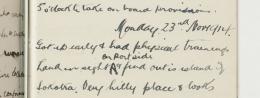 5 o'clock take on board provision.
Monday 23rd Nov 1914.
Got up early & had physical training
on port side
Land in sight & find out is island of
Socotra. Very hilly place & looks